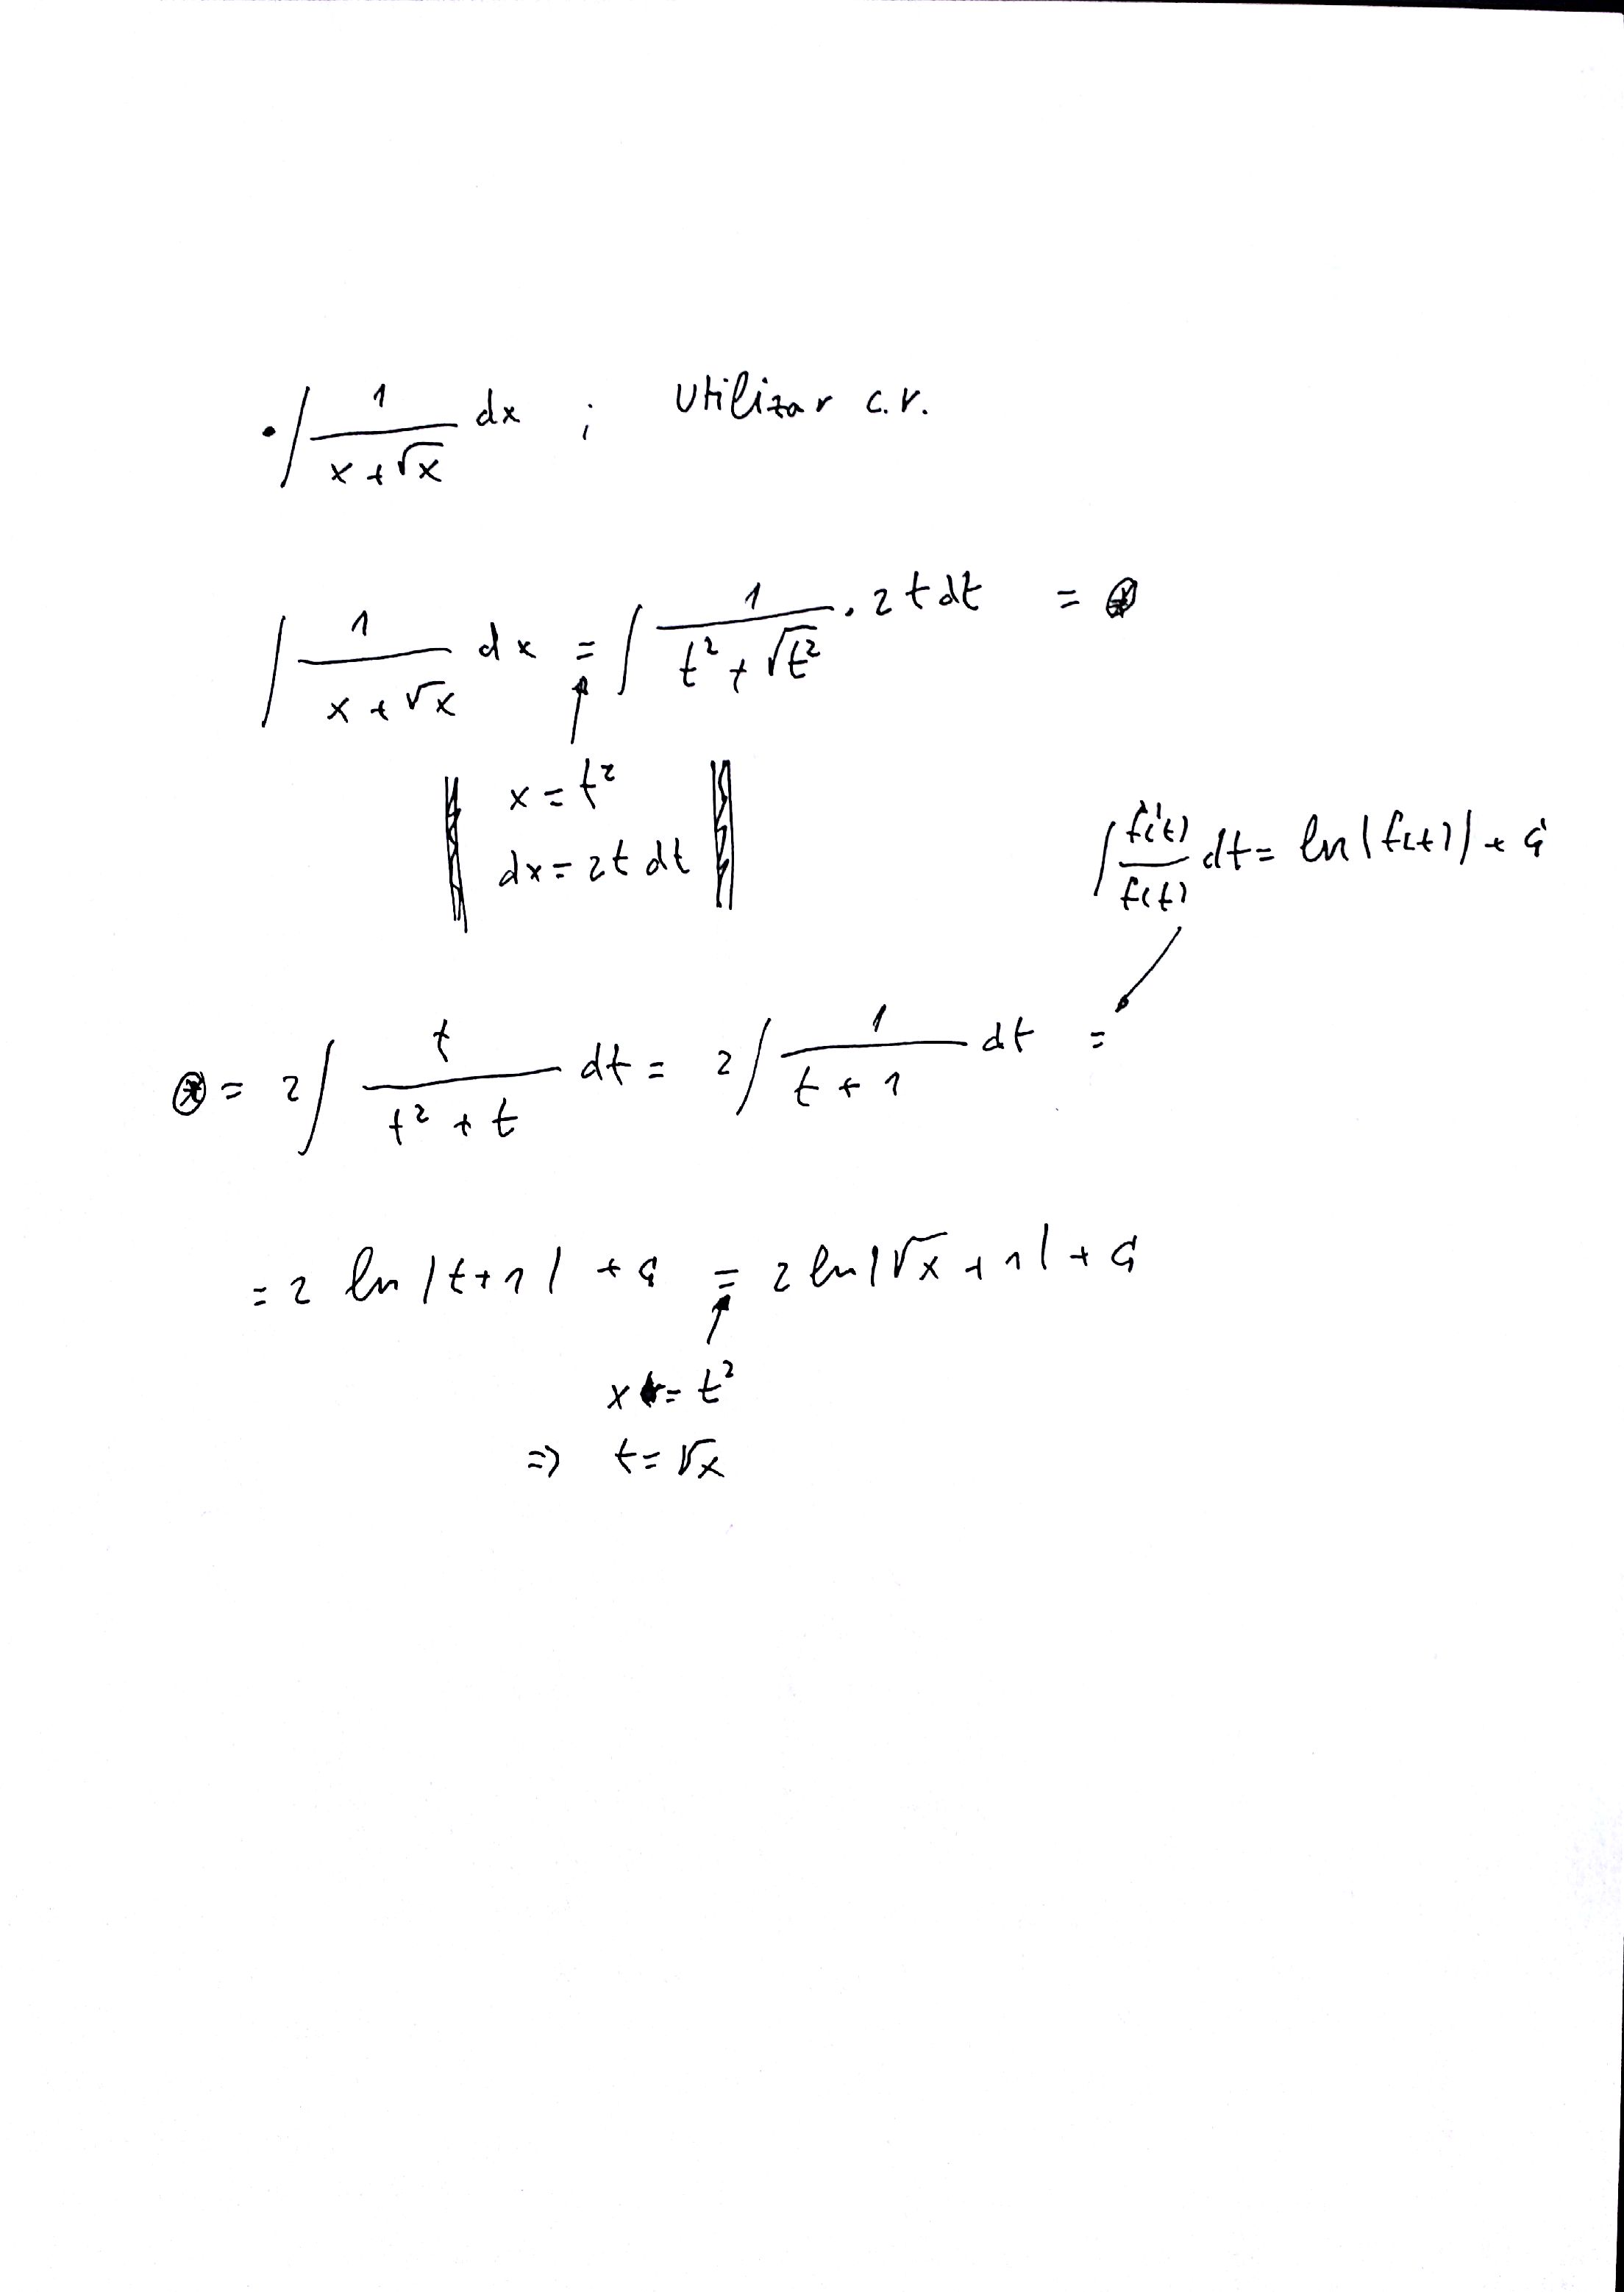 • ∫ 1/(x+√x) dx ; Utilizar c.v.
∫ 1/(x+√x) dx = ∫ 1/(t²+√t²) · 2t dt = ⊛
x = t²
dx = 2t dt
∫ f'(t)/f(t) dt = ln|f(t)| + C
⊛ = 2 ∫ t/(t²+t) dt = 2 ∫ 1/(t+1) dt =
= 2 ln|t+1| + C = 2 ln|√x+1| + C
x = t²
⇒ t = √x